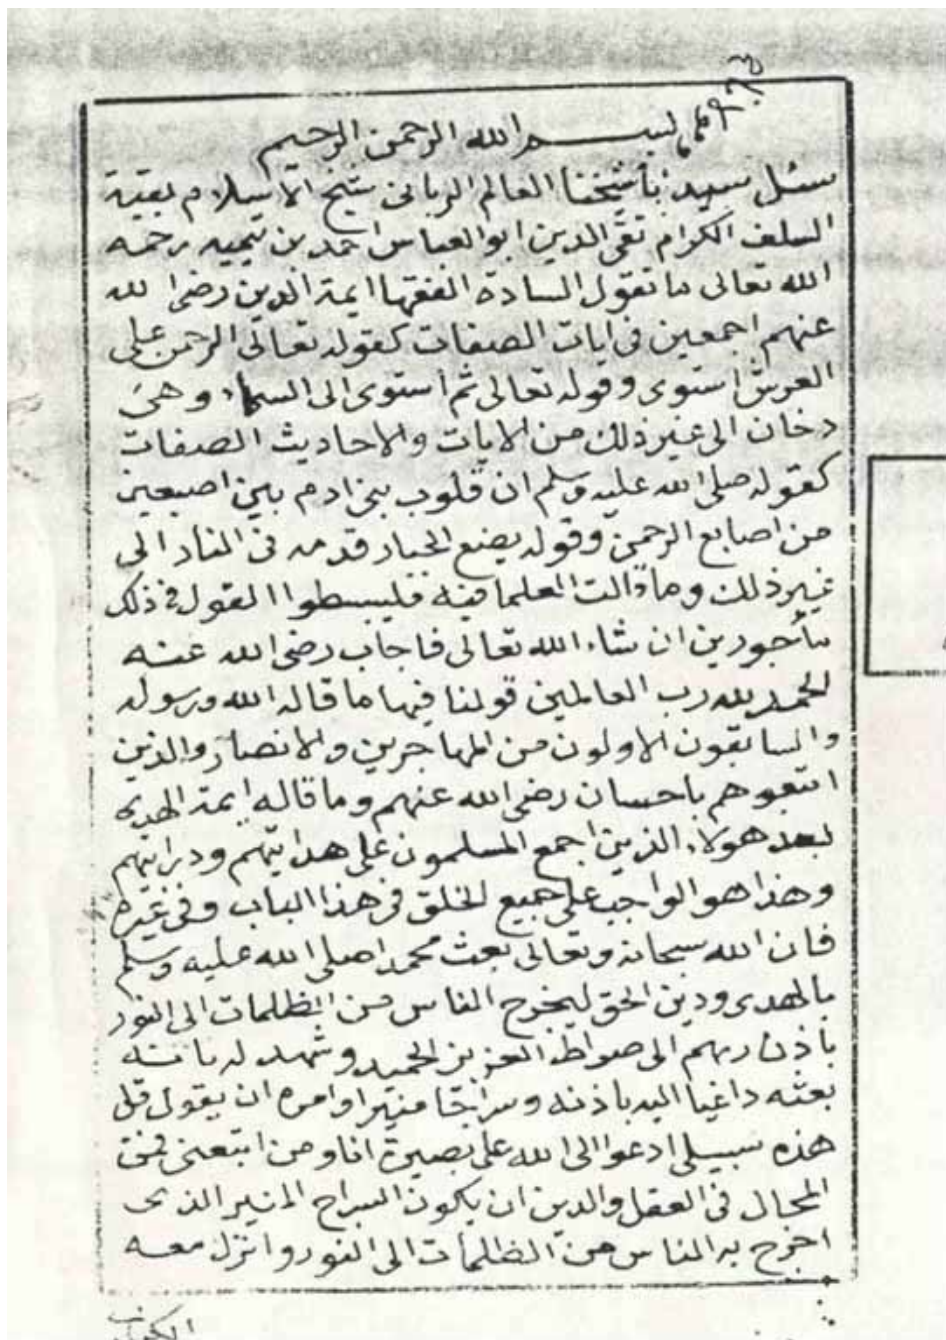 بسم الله الرحمن الرحيم
سئل سيدنا شيخنا العالم الرباني شيخ الاسلام بقية
السلف الكرام تقي الدين ابو العباس احمد بن تيميه رحمه
الله تعالى ما تقول السادة الفقها ايمة الدين رضى الله
عنهم اجمعين فى ايات الصفات كقوله تعالى الرحمن على
العرش استوى وقوله تعالى ثم استوى الى السماء وهي
دخان الى غير ذلك من الايات والاحاديث الصفات
كقوله صلى الله عليه وسلم ان قلوب بني ادم بين اصبعين
من اصابع الرحمن وقوله يضع الجبار قدمه فى النار الى
غير ذلك وما قالت العلما فيه فليبسطوا القول فى ذلك
مأجورين ان شاء الله تعالى فاجاب رضى الله عنه
الحمد لله رب العالمين قولنا فيها ما قاله الله ورسوله
والسابقون الاولون من المهاجرين والانصار والذين
اتبعوهم باحسان رضى الله عنهم وما قاله ايمة الهدى
بعد هولاء الذين اجمع المسلمون على هدايتهم ودرايتهم
وهذا هو الواجب على جميع الخلق فى هذا الباب وفى غيره
فان الله سبحانه وتعالى بعث محمدا صلى الله عليه وسلم
بالهدى ودين الحق ليخرج الناس من الظلمات الى النور
باذن ربهم الى صراط العزيز الحميد وشهد له بانه
بعثه داعيا اليه باذنه وسراجا منيرا وامره ان يقول قل
هذه سبيلى ادعوا الى الله على بصيرة انا ومن اتبعنى فمن
المحال فى العقل والدين ان يكون السراج المنير الذى
اخرج به الناس من الظلمات الى النور وانزل معه
الكتاب